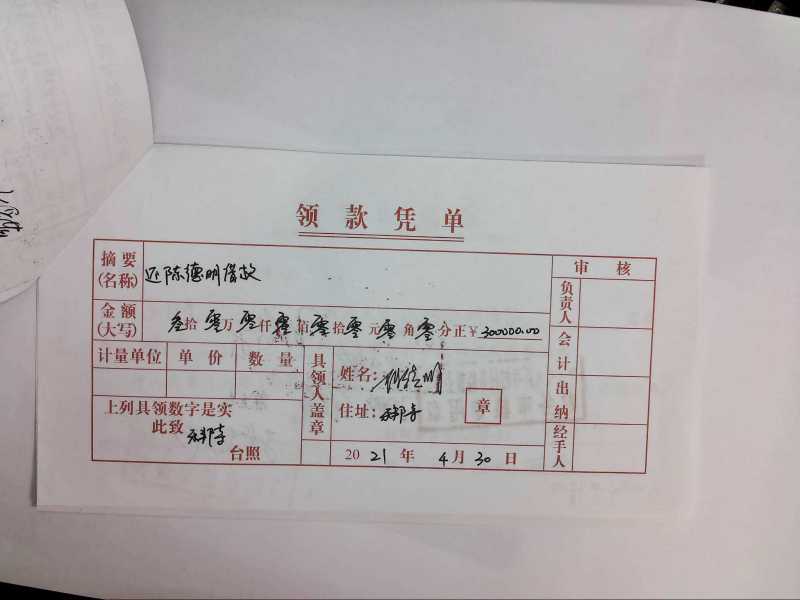 领款凭单
摘要(名称) 还陈德明借款
审核
金额(大写) 叁拾零万零仟零佰零拾零元零角零分正¥300000.00
负责人
会计
出纳
经手人
计量单位 单价 数量
具领人盖章
姓名:陈德明
住址:
章
上列具领数字是实
此致
台照
2021年4月30日